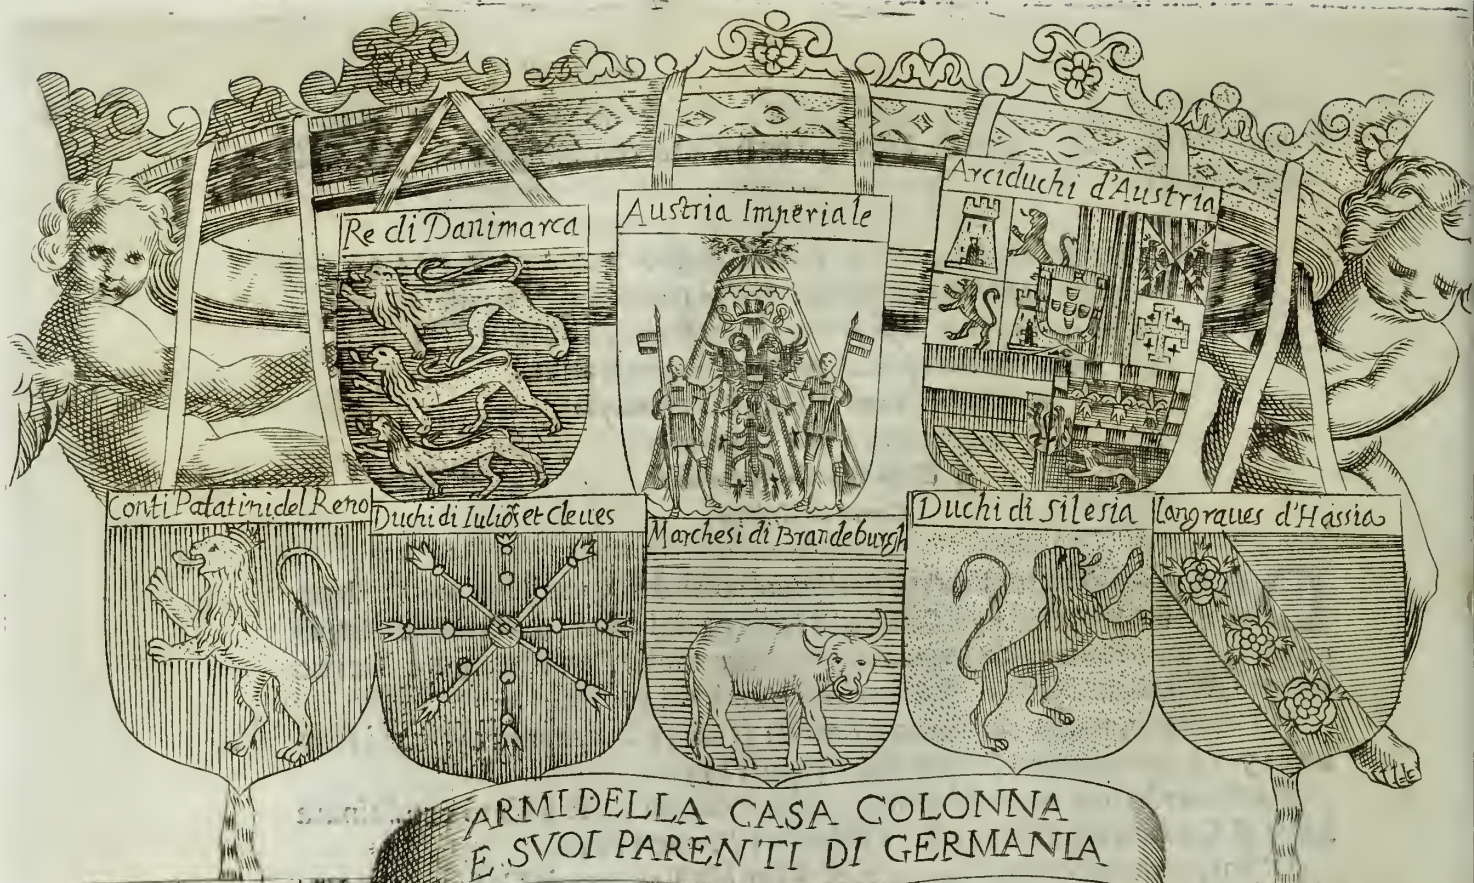 Re di Danimarca
Austria Imperiale
Arciduchi d'Austria
Conti Palatini del Reno
Duchi di Iuliōs et Cleues
Marchesi di Brandeburgh
Duchi di Silesia
langraues d'Hassia
ARMI DELLA CASA COLONNA
E SVOI PARENTI DI GERMANIA